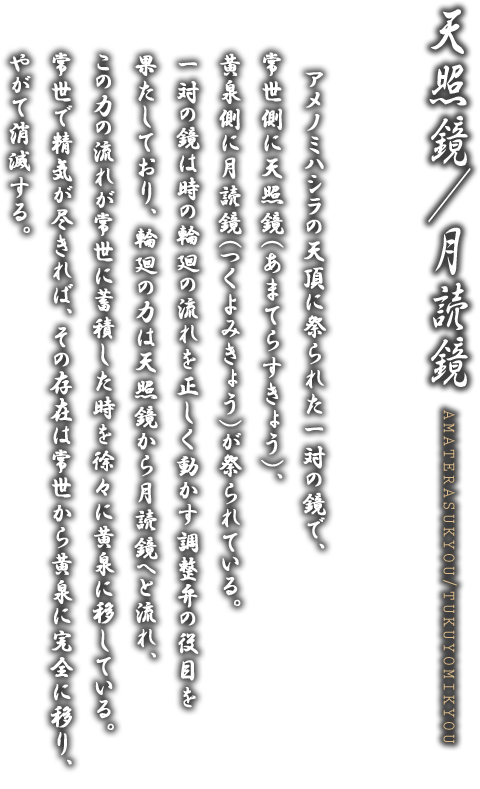 天照鏡／月読鏡
AMATERASUKYOU/TUKUYOMIKYOU
アメノミハシラの天頂に祭られた一対の鏡で、
常世側に天照鏡（あまてらすきょう）、
黄泉側に月読鏡（つくよみきょう）が祭られている。
一対の鏡は時の輪廻の流れを正しく動かす調整弁の役目を
果たしており、輪廻の力は天照鏡から月読鏡へと流れ、
この力の流れが常世に蓄積した時を徐々に黄泉に移している。
常世で精気が尽きれば、その存在は常世から黄泉に完全に移り、
やがて消滅する。